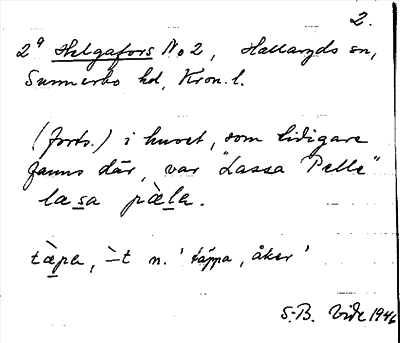 2.
2ª Helgafors No 2, Hallaryds sn,
Sunnerbo hd, Kron. l.
(forts.) i huset, som tidigare
fanns där, var "Lassa Pelle"
lasa pὲla.
tὲpa, -̀t n. 'täppa, åker'
S-B. Vide 1946